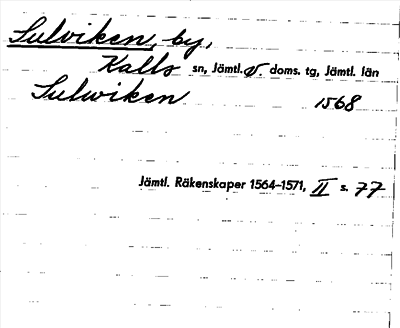 Sulviken, by,
Kalls sn, Jämtl. v. doms. tg, Jämtl. län
Sulwiken 1568
Jämtl. Räkenskaper 1564–1571, II s. 77